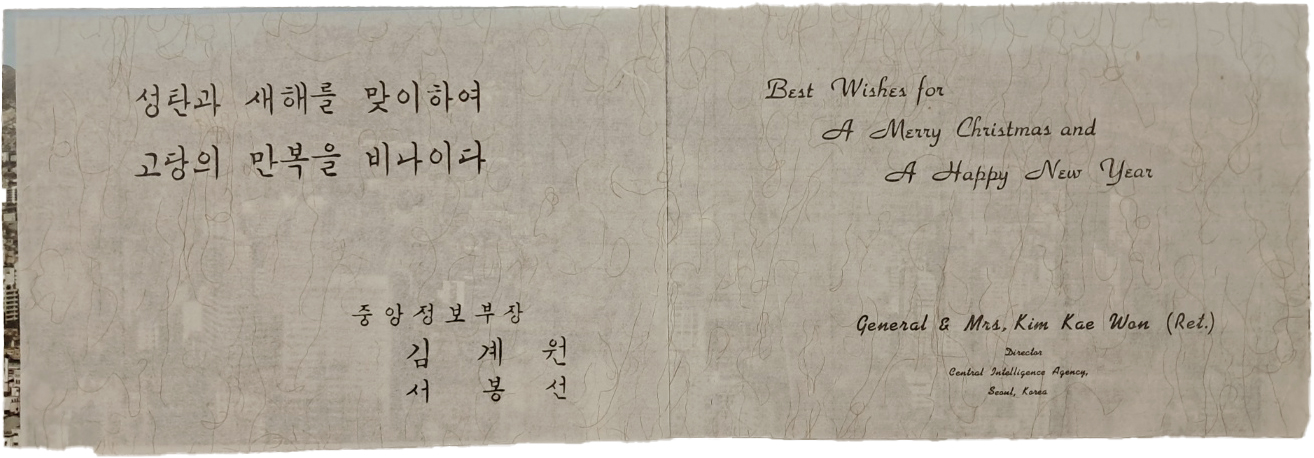 성탄과 새해를 맞이하여
고당의 만복을 비나이다
중앙정보부장
김 계 원
서 봉 선
Best Wishes for
A Merry Christmas and
A Happy New Year
General & Mrs, Kim Kae Won (Ret.)
Director
Central Intelligence Agency,
Seoul, Korea